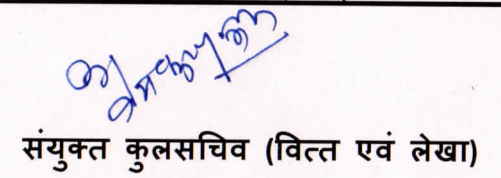 संयुक्त कुलसचिव (वित्त एवं लेखा)